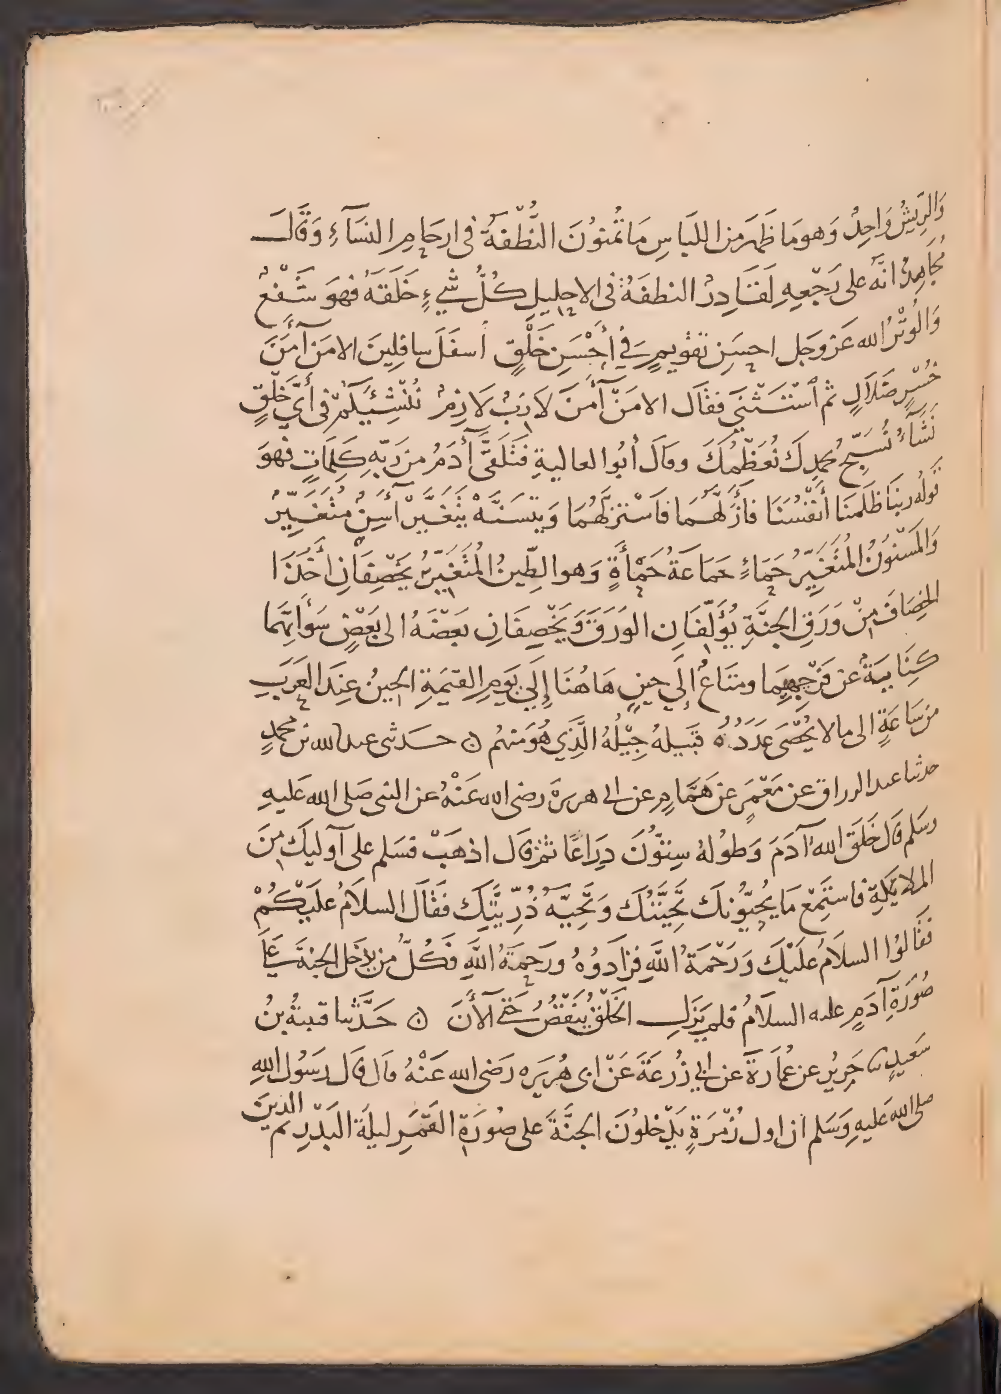 وَالرِّيشُ وَاحِدٌ وَهو مَا ظَهَرَ من اللبَاسِ مَا تُمْنُونَ النُّطْفَةُ فى ارحَامِ النسَآءِ وَقَالَ
مُجَاهِدٌ انَّه على رَجْعِهِ لَقَادِرٌ النطفَةُ فى الاحليلِ كُلُّ شيءٍ خَلَقَهُ فهوَ شَفْعٌ
وَالوَتْرُ الله عَز وجل احسَنِ تقويمٍ في أَحْسَنِ خَلْقٍ أسفَلَ سافِلِينَ الا مَن آمَنَ
خُسْرٍ ضَلاَلٍ ثم اسْتَثْنَى فقَال الا مَنْ آمَنَ لازبٌ لازمٌ نُنْشِئَكُمْ فى أَيِّ خَلْقٍ
نَشَآءُ نُسَبِّحُ بحَمدِكَ نُعَظِّمُكَ وقال أبُو العاليةِ فَتَلَقَّى آدَمُ من رَبّهِ كَلِمَاتٍ فهوَ
قَولُه ربنَا ظَلَمنَا أَنفُسَنَا فَأَزَلَّهُمَا فَاسْتَزَلَّهُمَا وَيتسَنَّهْ يَتَغَيَّر آسِنٍ مُتَغَيِّرٌ
وَالمَسْنونُ المُتَغَيِّرُ حَمَاءٍ جمَاعَةُ حَمْأَةٍ وَهو الطِّينُ المُتَغَيِّرُ يَخْصِفَانِ أَخْذَا
الخِصَافَ مِنْ وَرَقِ الجنَّةِ يُؤَلِّفَانِ الوَرَقَ وَيَخْصِفَانِ بَعضَهُ الى بَعْضٍ سَوْآتِهِمَا
كنَايَةٌ عن فَرْجِهِمَا ومتَاعٌ إلَي حينٍ هَاهُنَا إِلَي يَومِ القيمَةِ الحِينُ عِندَ العَرَبِ
من سَاعَةٍ الى ما لا يُحْصَى عَدَدُهُ قَبيلهُ جِيْلُهُ الَّذِي هُوَ منهُم ۞ حَدثنى عبد الله بن محمدٍ
حدثنا عبد الرزاق عن مَعْمَرٍ عن هَمَّامٍ عن ابى هريرة رضى الله عَنْهُ عن النبى صَلى الله عَليهِ
وسَلم قال خَلَقَ اللهُ آدَمَ وَطولُهُ سِتُّونَ ذِرَاعًا ثم قال اذهَبْ فسَلم على اوليكَ مِنَ
الملايكَةِ فاستَمِعْ مَا يُحَيُّونكَ تَحِيَّتُكَ وَتَحِيَّةُ ذُرِّيَّتِكَ فَقَال السلاَمُ عَلَيكُمْ
فقَالوُا السلاَمُ عَلَيْكَ وَرَحْمَةُ اللَّهِ فزَادُوهُ ورَحمَةُ اللَّهِ فَكُلُّ من يدخل الجنةَ على
صُورَةِ آدَمَ عليه السلاَمُ فلم يَزَلِ الخَلْقُ يَنْقُصُ حَتى الآنَ ۞ حَدَّثنا قتيبةُ بنُ
سَعيدٍ نا جَرِيرٌ عن عُمَارَةَ عن ابي زُرعَةَ عَنْ ابى هُرَيرَه رَضى الله عَنْهُ قال قال رَسُول اللهِ
صلى الله عَليهِ وَسَلم ان اول زُمْرَةٍ يَدْخُلونَ الجنَّةَ على صُورَةِ القَمَرِ ليلَةَ البَدْرِ ثم الذينَ